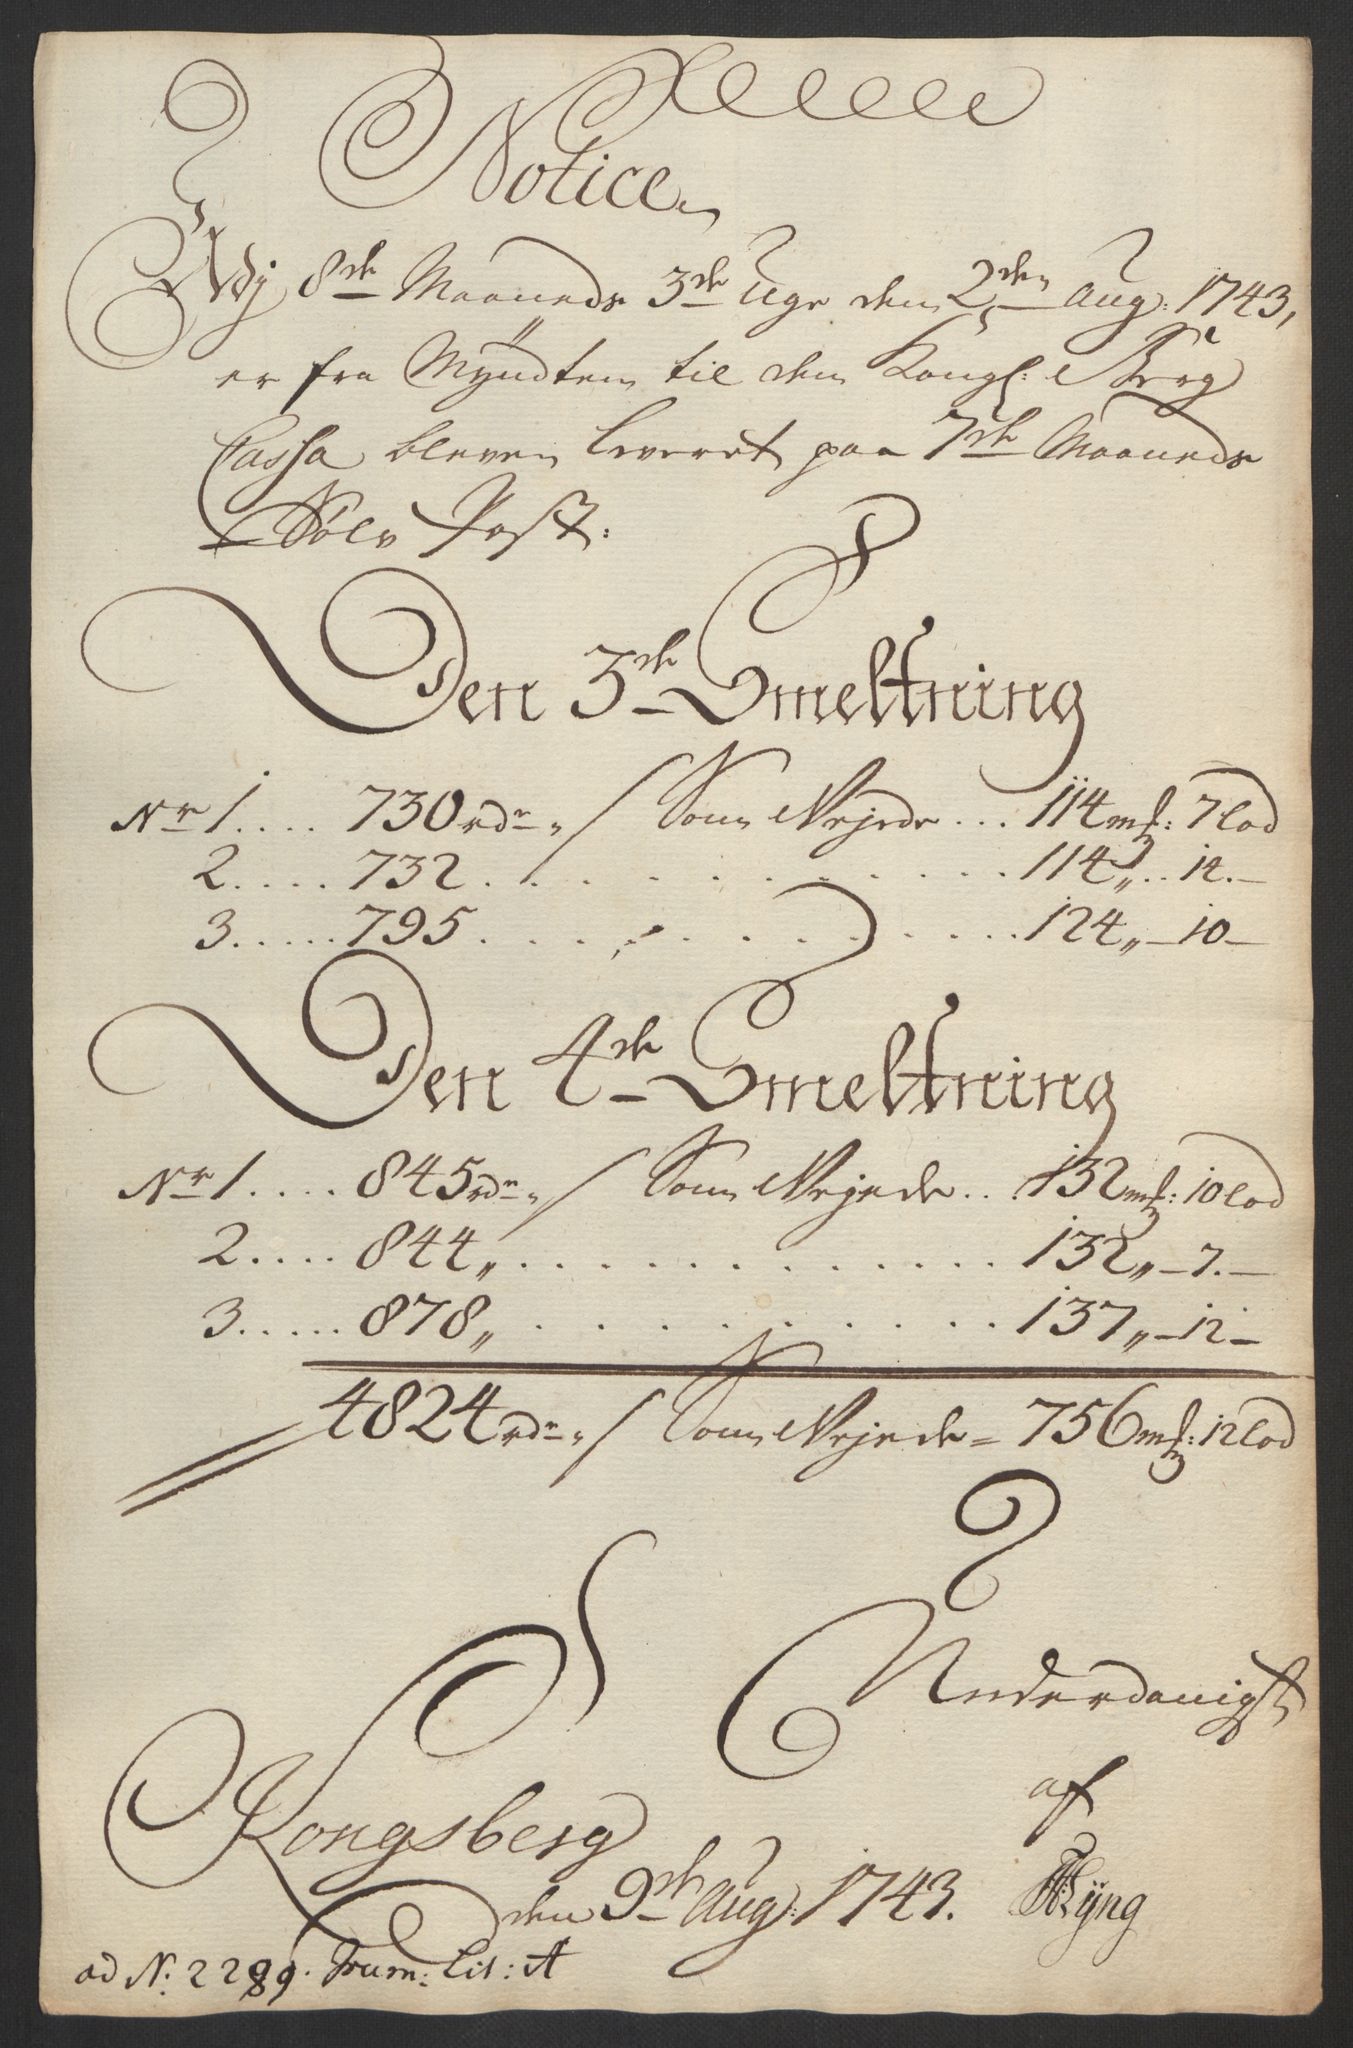 Notice
Ady 8de Maaneds 3de Uge den 2den Aug: 1743,
er fra Myndten til den Kongl: Berg
Cassa bleven leveret paa 7de Maaneds
Sølv Post:
Den 3de Smeltning
Nr 1 .... 730 rdr „ / Som Vejede ... 114 mk: 7 Lod
2 ..... 732 ............ 114 „ .. 14. —
3 ..... 795 ............ 124 „ — 10 —
Den 4de Smeltning
Nr 1 .... 845 rdr „ / Som Vejede ... 132 mk: 10 Lod
2 ..... 844 „ ............ 132 „ — 7. —
3 ..... 878 „ ............ 137 „ — 12 —
4824 rdr „ / Som Vejede = 756 mk: 12 Lod
Underdanigst
af
Kongsberg
den 9de Aug: 1743.
ad N: 2289. Journ: Lit: A